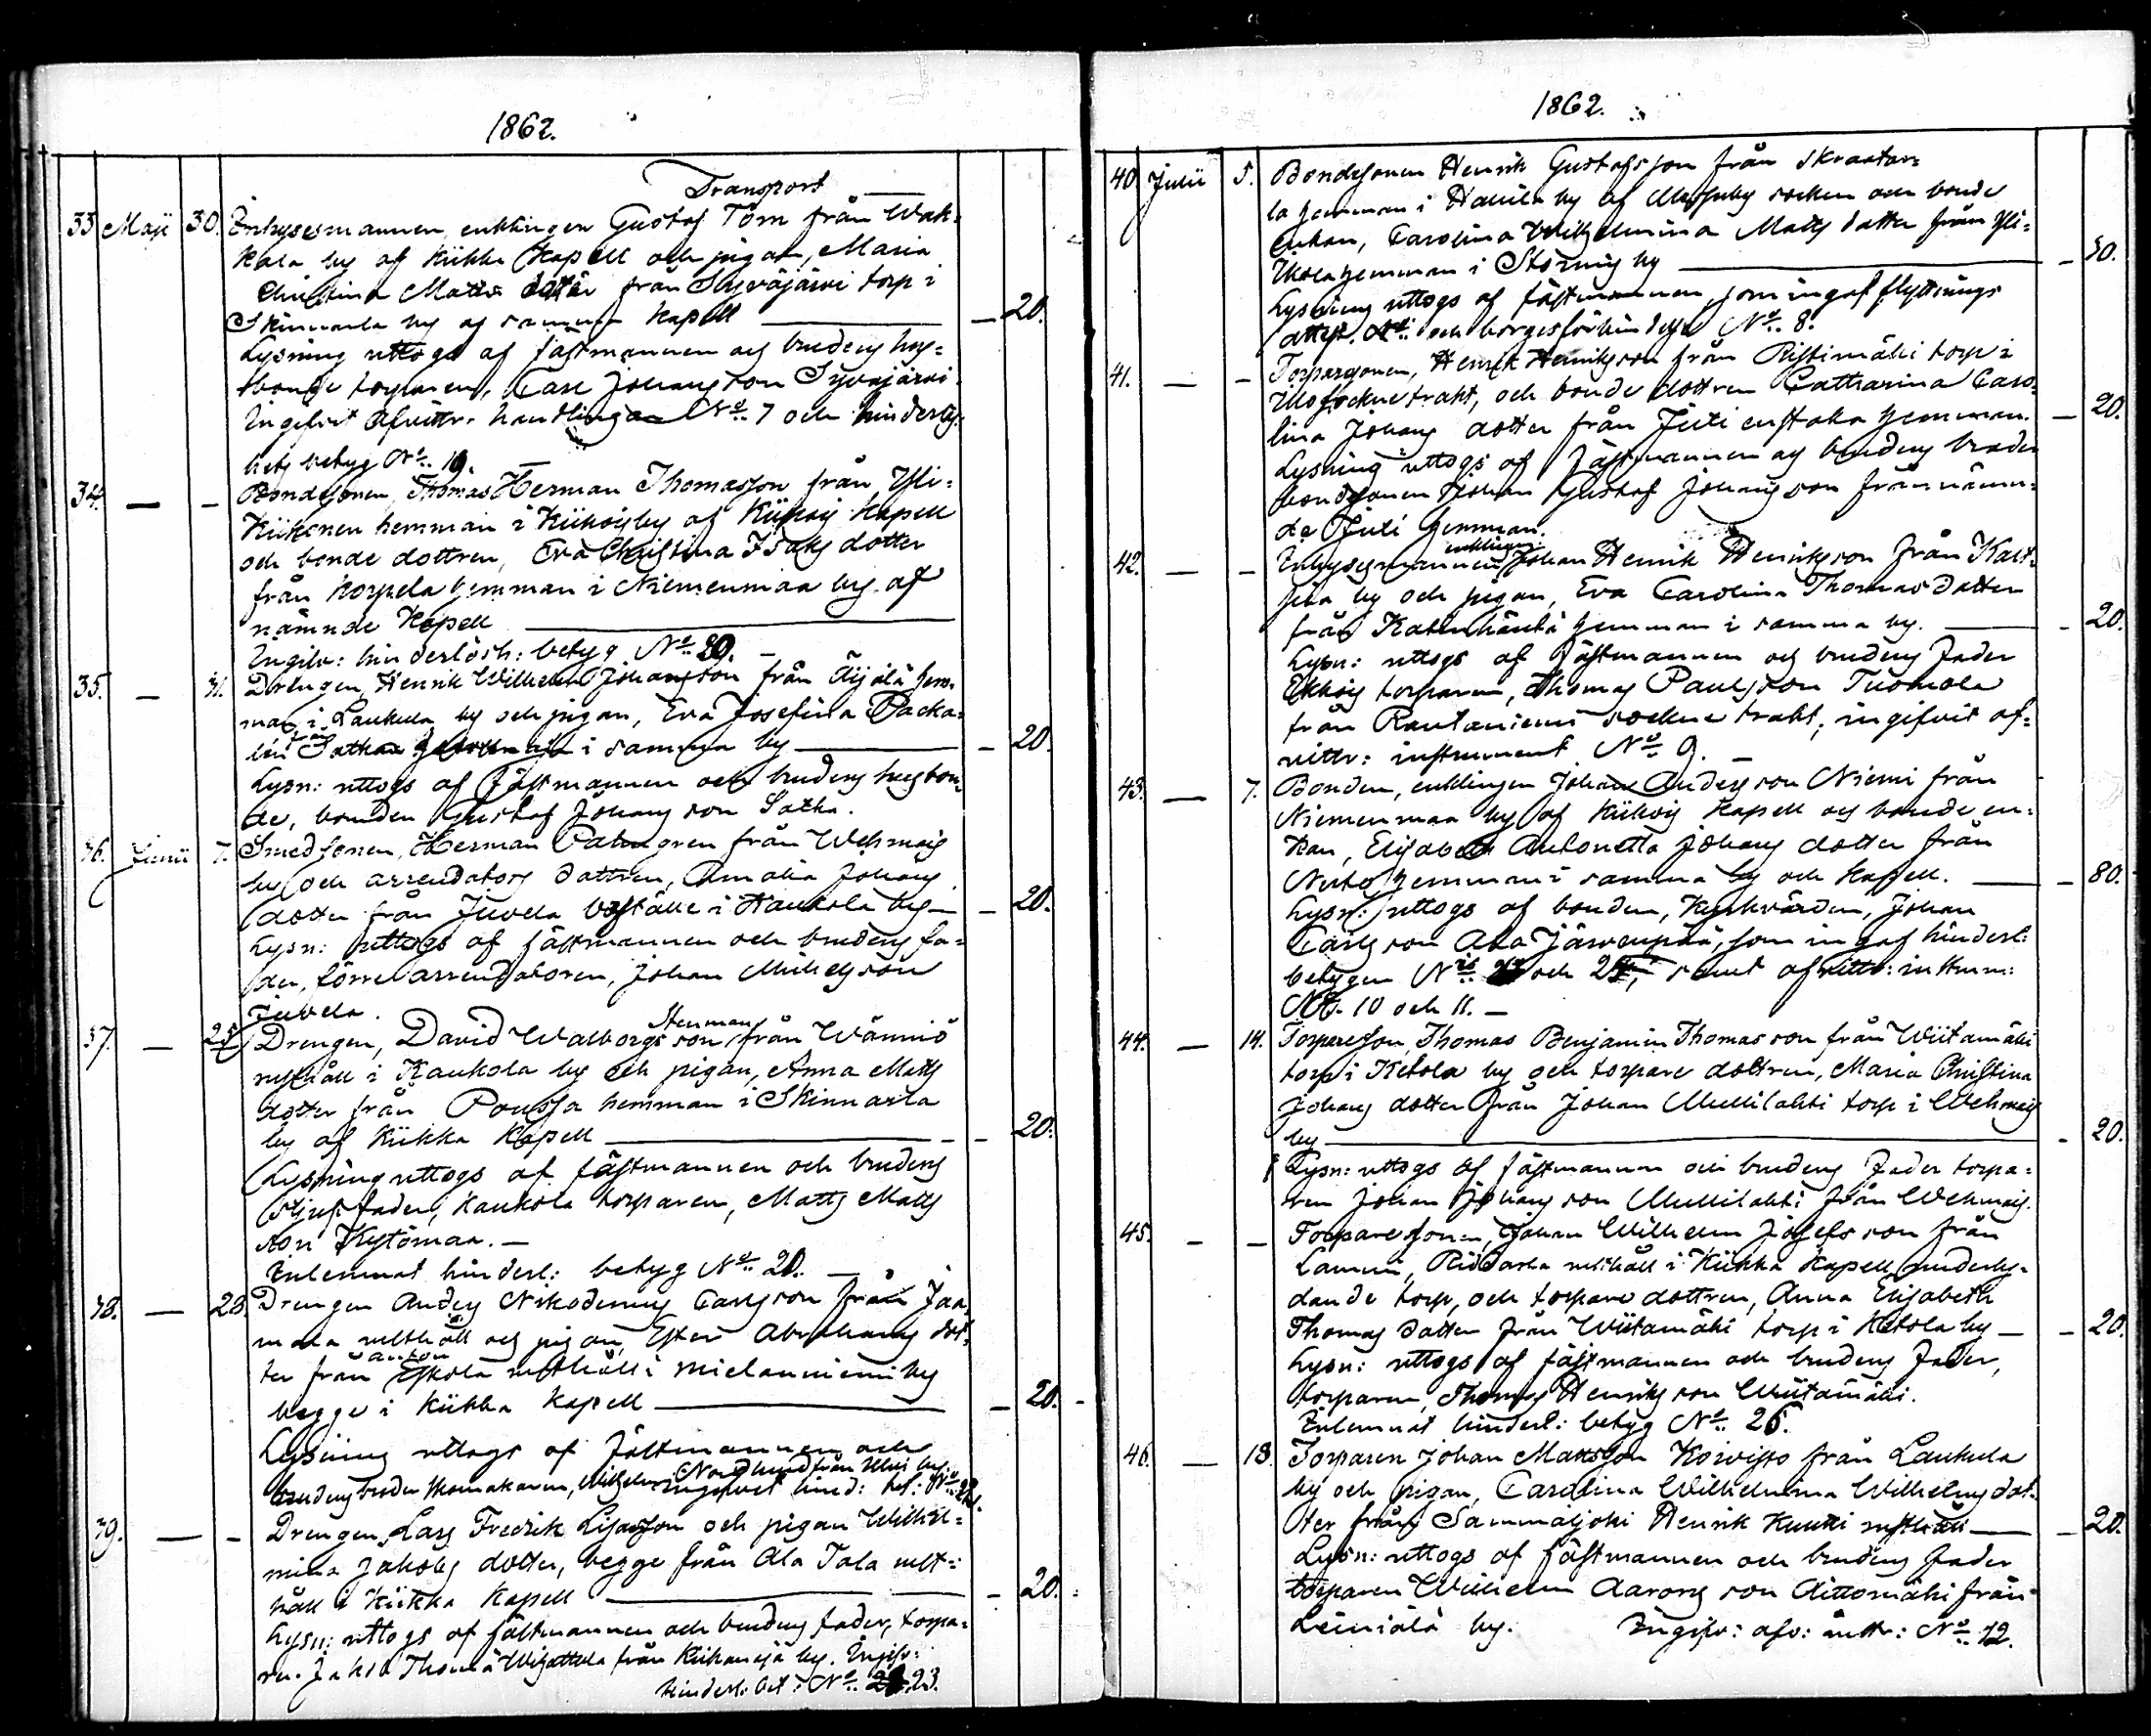 1862.
Transport
33 Maji 30. Inhysesmannen, enklingen Gustaf Törn från Wak-
kala by af Kiikka Kapell och pigan, Maria
Christina Matts dotter från Syväjärvi torp i
Skinnarla by af samma Kapell — 20.
Lysning uttogs af fästmannen och brudens hus-
bonde torparen, Carl Johansson Syväjärvi.
Ingifvit Afvittr. handlingar No. 7 och hinderlös-
hets betyg No. 19.
34. — - Bondesonen, Thomas Herman Thomasson från Yli-
Kiikonen hemman i Kiikois by af Kiikois Kapell
och bonde dottren, Eva Christina Isaks dotter
från Korpela hemman i Niemenmaa by af
nämnde Kapell
Ingifv: hinderlösh: betyg No. 20. —
35. — 31. Drengen, Henrik Wilhelm Johansson från Äijälä hem-
man i Laukula by och pigan, Eva Josefina Packa-
lin från Satka i samma by — 20
Lysn: uttogs af fästmannen och brudens husbon-
de, bonden Gustaf Johans son Satka.
36. Junii 7. Smedsonen, Herman Palmgren från Wehmais
by och arrendators dottren, Amalia Johans
dotter från Juvela boställe i Haukola by — 20.
Lysn: uttogs af fästmannen och brudens fa-
der, förre arrendatoren, Johan Michelsson
Juvela.
37. — 25 Drengen, David Walborgs son Stenman från Wänniö
rusthåll i Kaukola by och pigan, Anna Matts
dotter från Poussa hemman i Skinnarla
by af Kiikka Kapell — 20.
Lysning uttogs af fästmannen och brudens
stjuffader, Kaukola torparen, Matts Matts
son Kytömaa. —
Inlemnat hinderl: betyg No. 21. —
38. — 28. Drengen Anders Nikodemus Carlsson från Jaa-
mala rusthåll och pigan, Ester Abrahams dot-
ter från Eskola rusthåll i Mielanniemi by
begge i Kiikka Kapell — 20.
Lysning uttogs af fästmannen och
brudens broder skomakaren, Wilhelm Nordlund från Illois by
ingifvet hind: bet: No. 22.
39. — - Drengen, Lars Fredrik Lisasson och pigan Wilhel-
mina Jakobs dotter, begge från Ala Tala rust-
håll i Kiikka Kapell — 20.
Lysn: uttogs af fästmannen och brudens fader, torpa-
ren Jakob Thomä från Kiikanoja by. Ingifv:
hinderl: bet: No. 23.
1862.
40. Julii 5. Bondesonen Henrik Gustafsson från Skraatar-
la hemman i Hauila by af Mouhy socken och bonde
enkan, Carolina Wilhelmina Matts dotter från Yli-
Ikola hemman i Stormis by — 50.
Lysning uttogs af fästmannen, som ingaf flyttnings
attest och borgesförbindelse No. 8.
41. — - Torparsonen, Henrik Henriksson från Ristimäki torp i
Illo sockne trakt, och bonde dottren Catharina Caro-
lina Johans dotter från Juti enstaka hemman. — 20.
Lysning uttogs af fästmannen och brudens broder
bondesonen Johan Gustaf Johansson från nämn-
de Juti hemman.
42. — - Inhysesmannen enklingen Johan Henrik Henriksson från Karl-
by och pigan, Eva Carolina Thomas dotter
från hemman i samma by. — 20.
Lysn: uttogs af fästmannen och brudens fader
torparen, Thomas Paulsson Tuomola
från Rautaniemi sockne trakt, ingifvit af-
vittr: instrument No. 9. —
43. — 7. Bonden, enklingen Johan Andersson Niemi från
Niemenmaa by af Kiikois Kapell och bonde en-
kan, Elisabeth Antonetta Johans dotter från
hemman i samma by och Kapell. — 80.
Lysn: uttogs af bonden, Kyrkvärden, Johan
Carlsson Ala Järvenpää, som ingaf hinderl:
betygen No. och 25, samt afvittr: instrum:
No. 10 och 11. —
44. — 14. Torpareson, Thomas Benjamin Thomasson från Wiitamäki
torp i Ketola by och torpare dottren, Maria Christina
Johans dotter från Johan Myllilahti torp i Wehmais
by — 20.
Lysn: uttogs af fästmannen och brudens fader torpa-
ren Johan Johansson Myllilahti från Wehmais.
45. — - Torparesonen, Johan Wilhelm Josefsson från
Lammi, Riddarla rusthåll i Kiikka Kapell underly-
dande torp, och torpare dottren, Anna Elisabeth
Thomas dotter från Wiitamäki torp i Ketola by — 20.
Lysn: uttogs af fästmannen och brudens fader,
torparen, Thomas Henriksson Wiitamäki.
Inlemnat hinderl: betyg No. 26.
46. — 18. Torparen Johan Mattsson Koivisto från Laukula
by och pigan, Carolina Wilhelmina Wilhelms dot-
ter från Sammaljoki Henrik Kuutti rusthåll — 20.
Lysn: uttogs af fästmannen och brudens fader
torparen Wilhelm Aarons son Aittomäki från
Leiniälä by. Ingifv: afv: instr: No. 12.